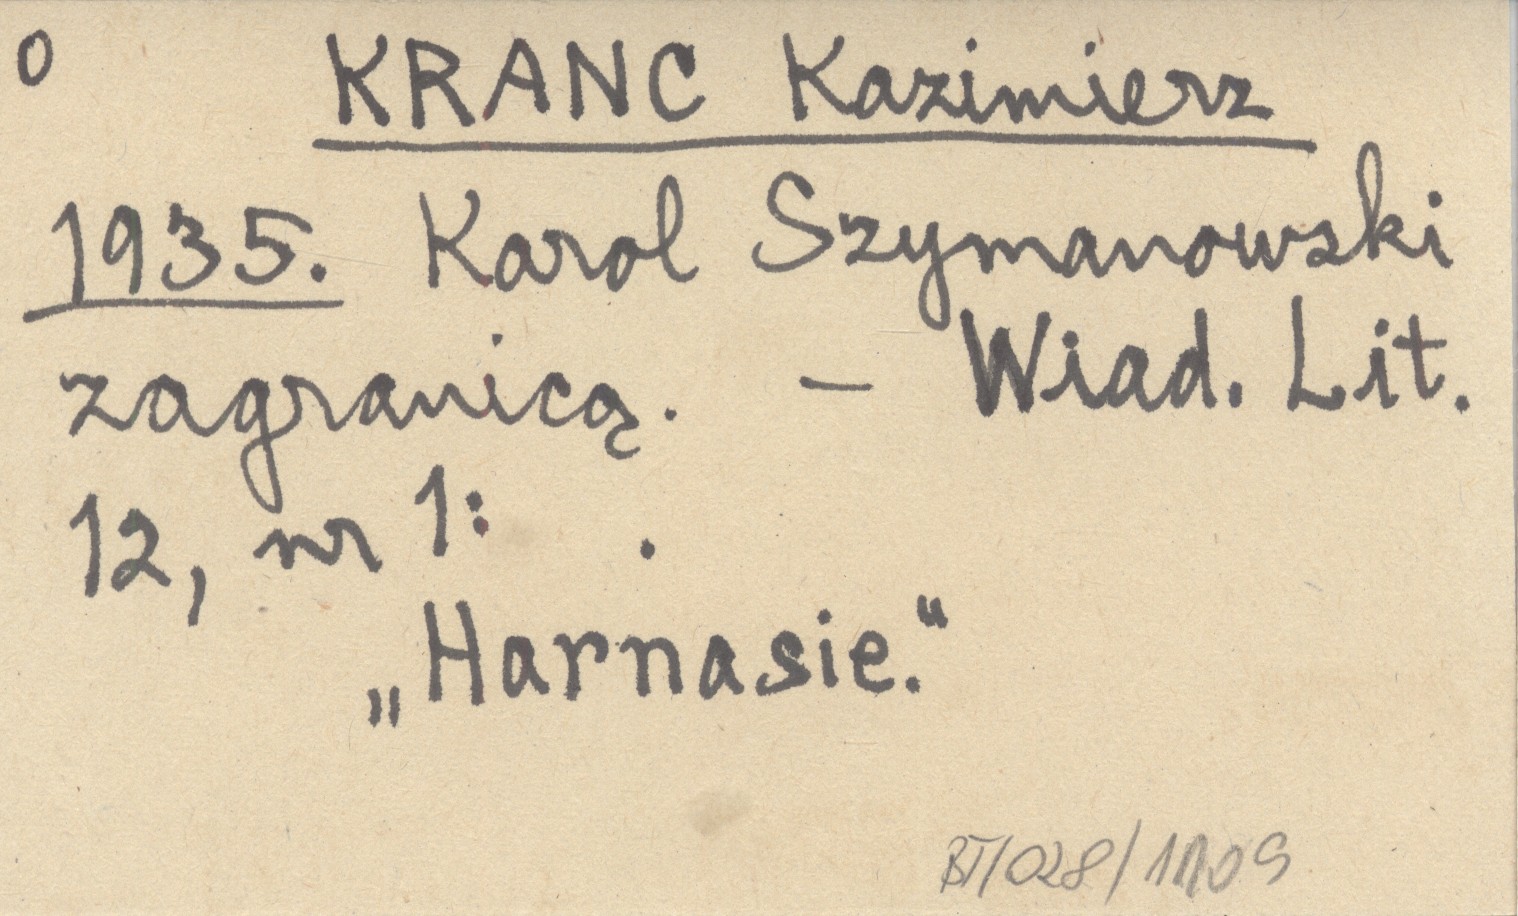 0 KRANC Kazimierz
1935. Karol Szymanowski
zagranicą. – Wiad. Lit.
12, nr 1: .
„Harnasie.“
BT/028/1109